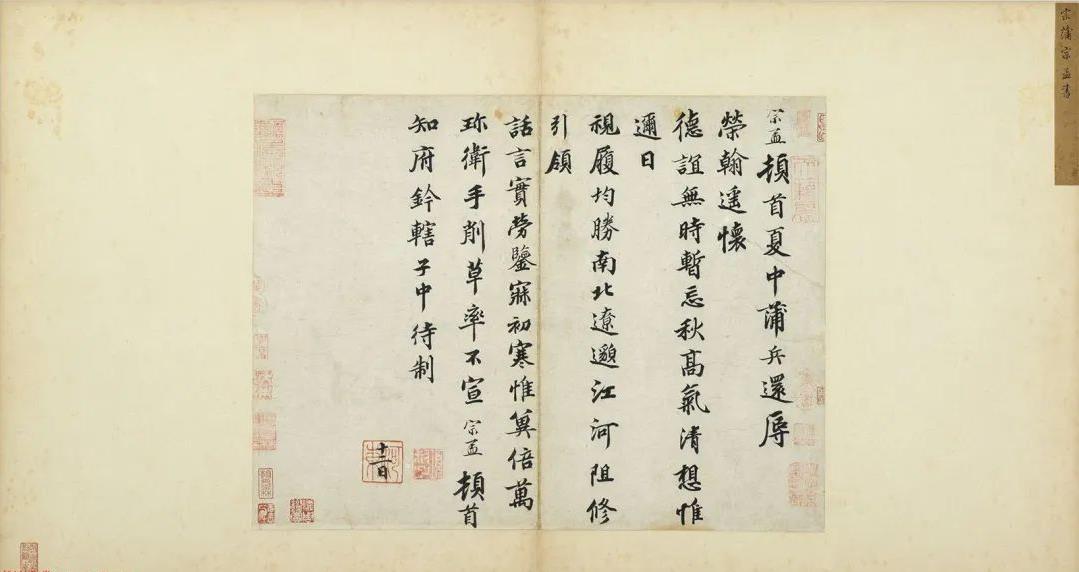 宋蒲宗孟書
宗孟頓首夏中蒲兵還辱
榮翰遥懷
德誼無時暫忘秋高氣清想惟
邇日
視履均勝南北遼邈江河阻修
引領
話言實勞鑒寐初寒惟冀倍萬
珎衛手削草率不宣宗孟頓首
知府鈐轄子中待制
十二日